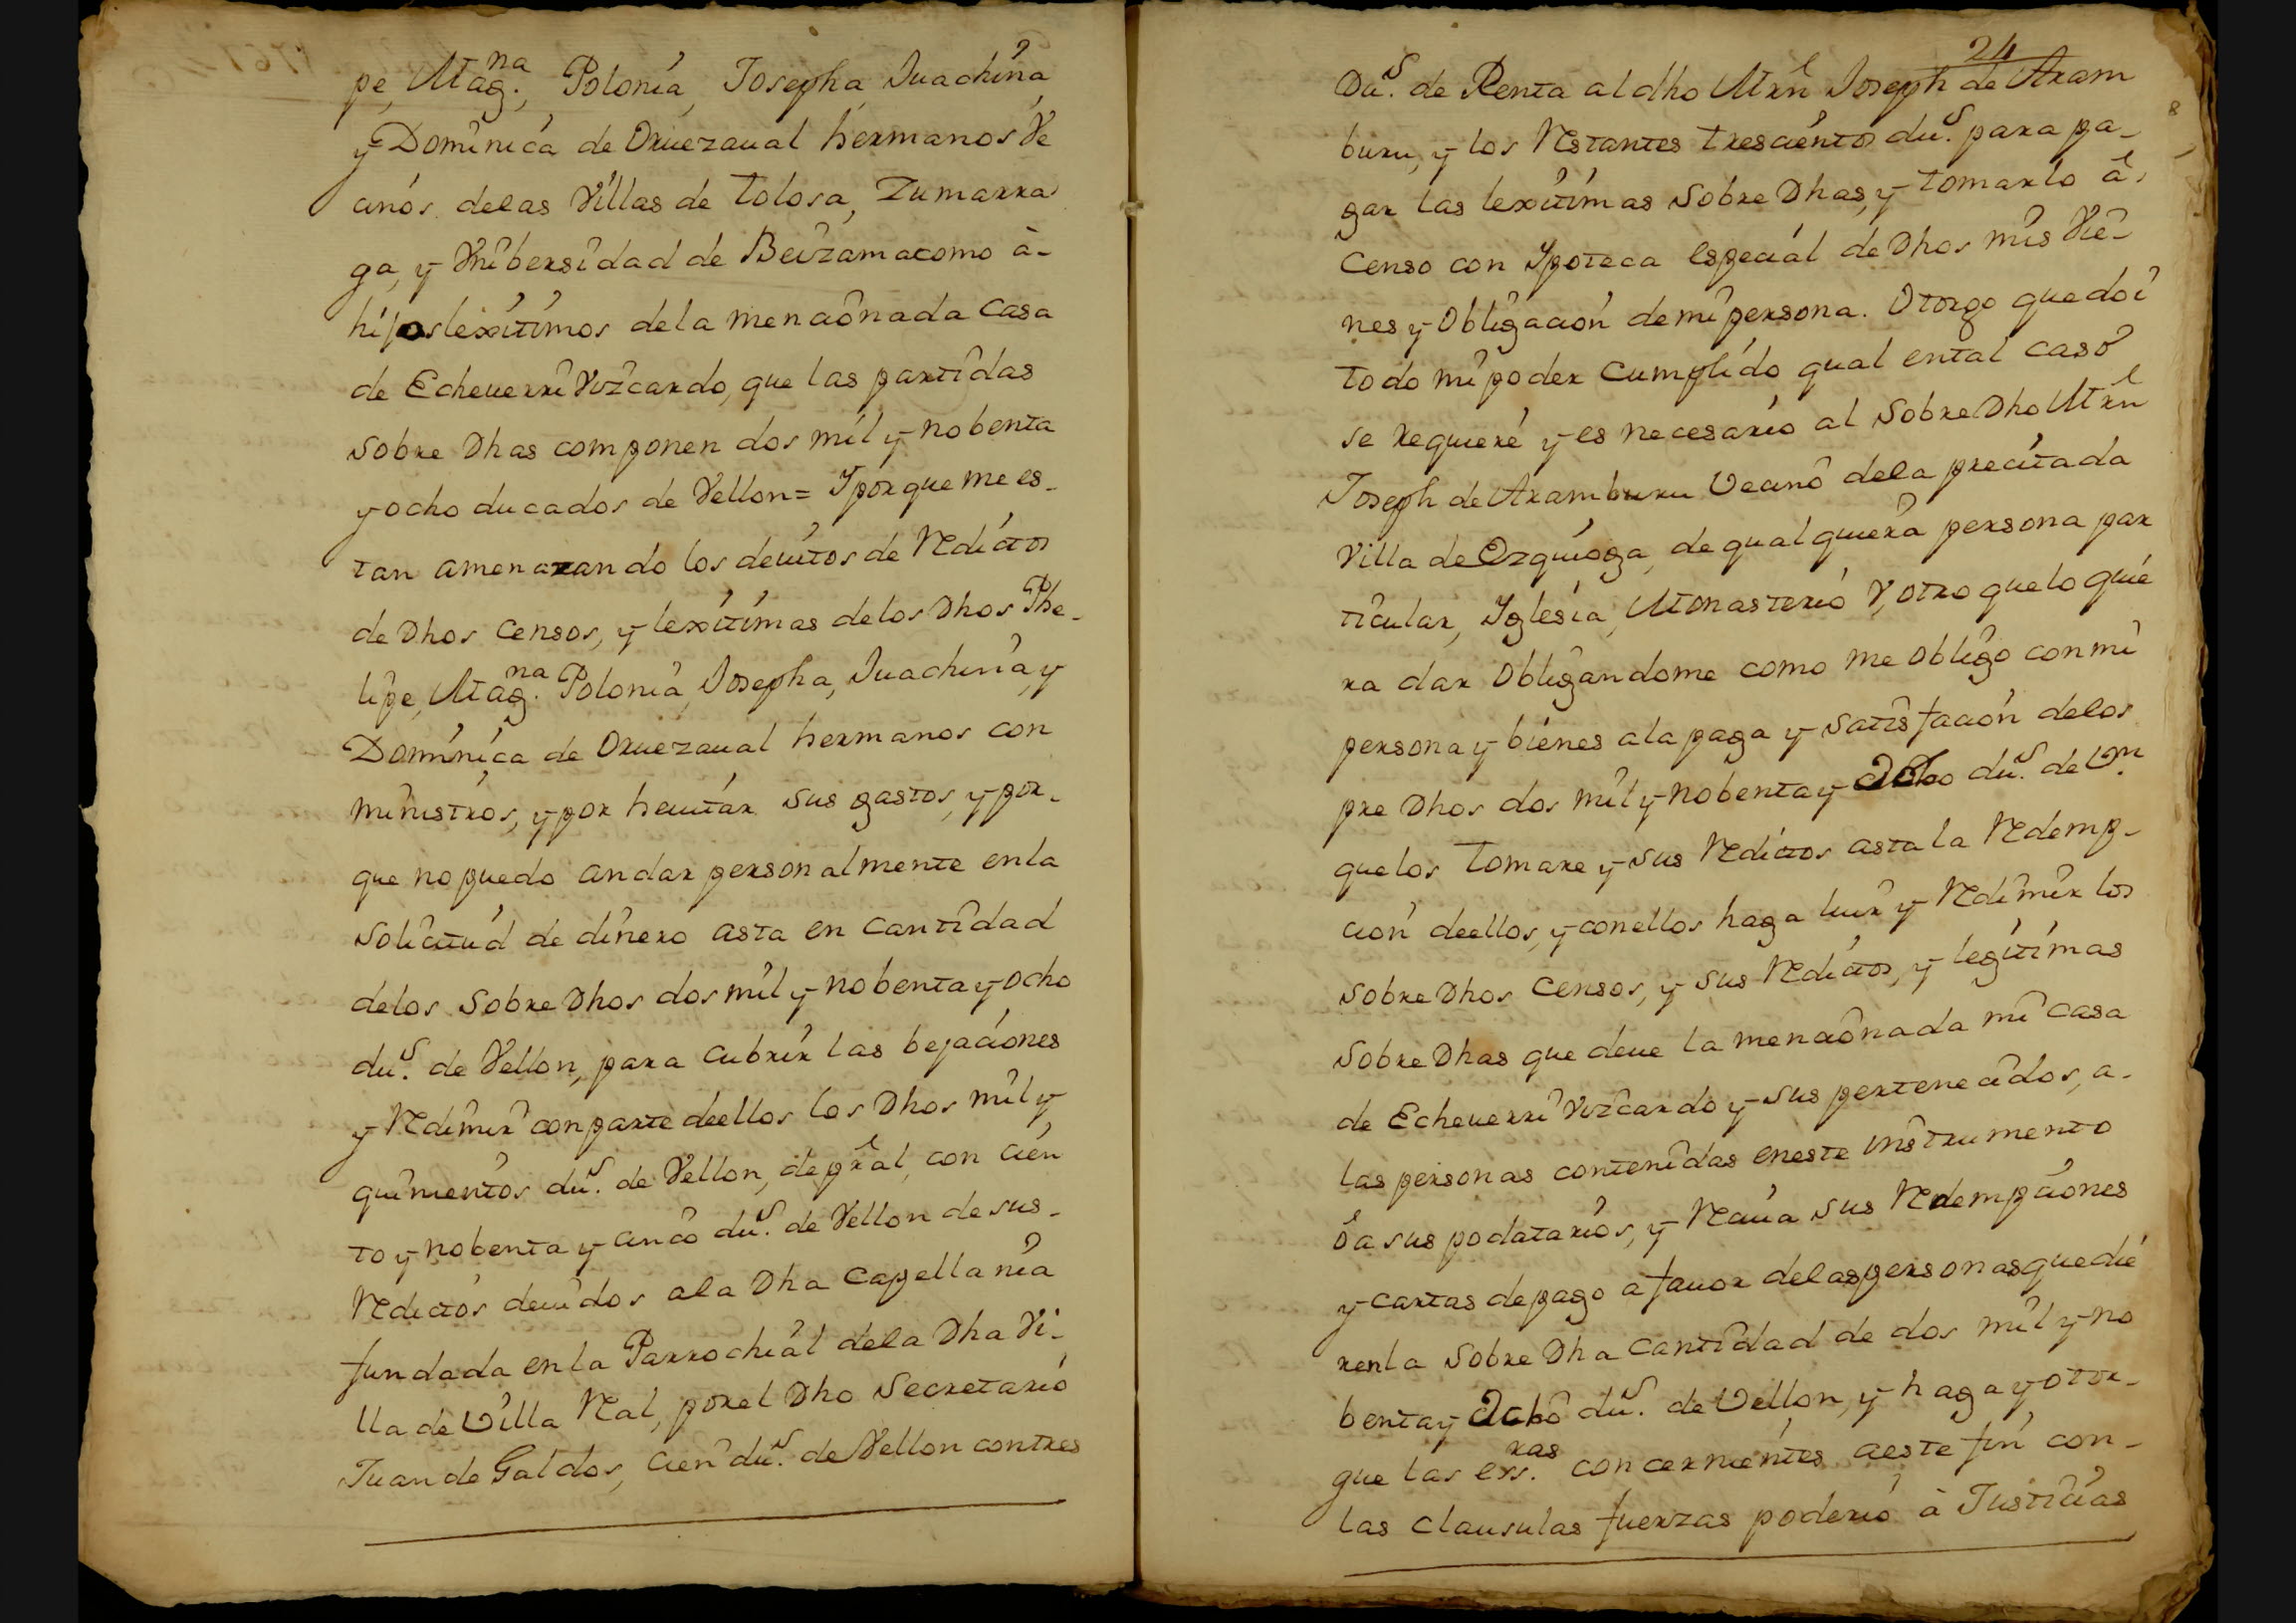 pe, Mag.na, Polonia, Josepha, Juachina,
y Dominica de Oruezaual hermanos Ve
cinos delas Villas de Tolosa, Zumarra
ga, y Vnibersidad de Beizama como à-
hijos lexitimos dela mencionada Casa
de Echeuerri Vizcardo, que las partidas
sobre Dhas componen dos mil y nobenta
y ocho ducados de Vellon= Y porque me es-
tan amenazando los deuitos de Redictos
de Dhos Censos, y lexitimas delos Dhos Phe-
lipe, Mag.na Polonia, Josepha, Juachina, y
Dominica de Oruezaual hermanos con
ministros, y por heuitar sus gastos, y por-
que no puedo andar personalmente en la
solicitud de dinero asta en Cantidad
delos sobre Dhos dos mil y nobenta y ocho
du.s de Vellon, para Cubrir las bejaciones
y Redimir con parte deellos los Dhos mil y
quinientos du.s de Vellon, de pral, con cien
to y nobenta y cinco du.s de Vellon de sus-
Redictos deuidos ala Dha Capellania
fundada en la Parrochial dela Dha Vi-
lla de Villa Real, por el Dho Secretario
Juan de Galdos, Cien du.s de Vellon con tres
24
Du.s de Renta al dho Mrn Joseph de Aram
buru, y los Restantes trescientos du.s para pa-
gar las lexitimas sobre Dhas, y tomarlo à
Censo con Ypoteca especial de Dhos mis Vie-
nes y Obligacion de mi persona. Otorgo que doi
todo mi poder Cumplido qual en tal caso
se requiere y es necesario al sobre Dho Mrn
Joseph de Aramburu Vecino dela precitada
Villa de Ezquioga, de qualquiera persona par
ticular, Iglesia, Monasterio, Y, otro que lo quie
ra dar Obligandome como me obligo con mi
persona y bienes ala paga y satisfacion delos
pre Dhos dos mil y nobenta y Ocho du.s de V.n
que los tomare y sus Redictos asta la Redemp-
cion deellos, y con ellos haga luir y Redimir los
sobre Dhos Censos, y sus Redictos, y legitimas
sobre Dhas que deue la mencionada mi casa
de Echeuerri Vizcardo y sus pertenecidos, a-
las personas contenidas en este instrumento
ò a sus podatarios, y Reciua sus Redempciones
y cartas de pago a fauor delas personas que die
ren la sobre Dha Cantidad de dos mil y no
benta y Ocho du.s de Vellon, y haga y otor-
que las ess.ras concernientes a este fin con-
las Clausulas fuerzas poderio à Justicias